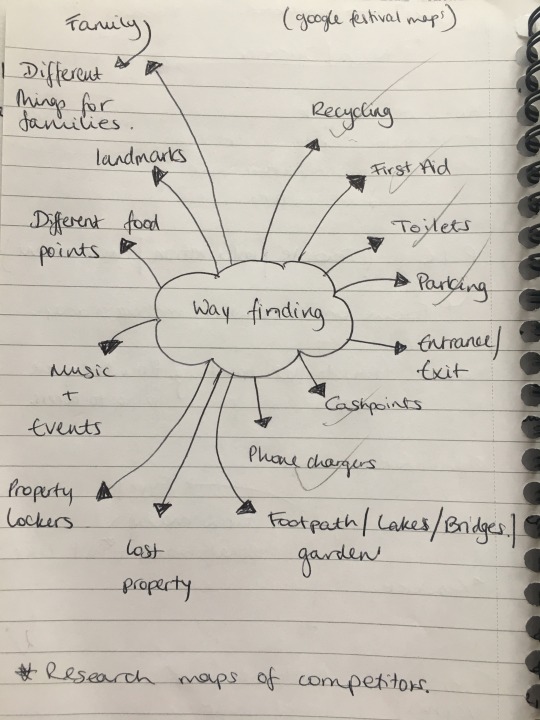 Family
(google festival maps)
Different
things for
families.
Recycling
landmarks
First Aid
Different food
points
Toilets
Parking
Way finding
Entrance/
Exit
Music
+
Events
Cashpoints
Phone chargers
Property
Lockers
Footpath/Lakes/Bridges/
garden
Lost
property
* Research maps of competitors.